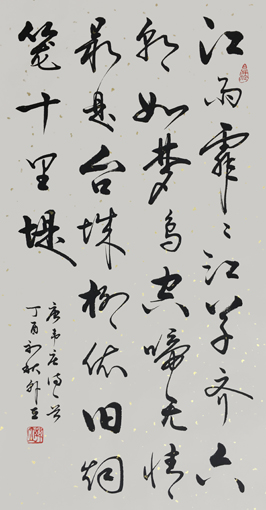 江雨霏〻江草齐六
朝如梦鸟空啼无情
最是台城柳依旧烟
笼十里堤
唐韦庄诗一首
丁酉初秋